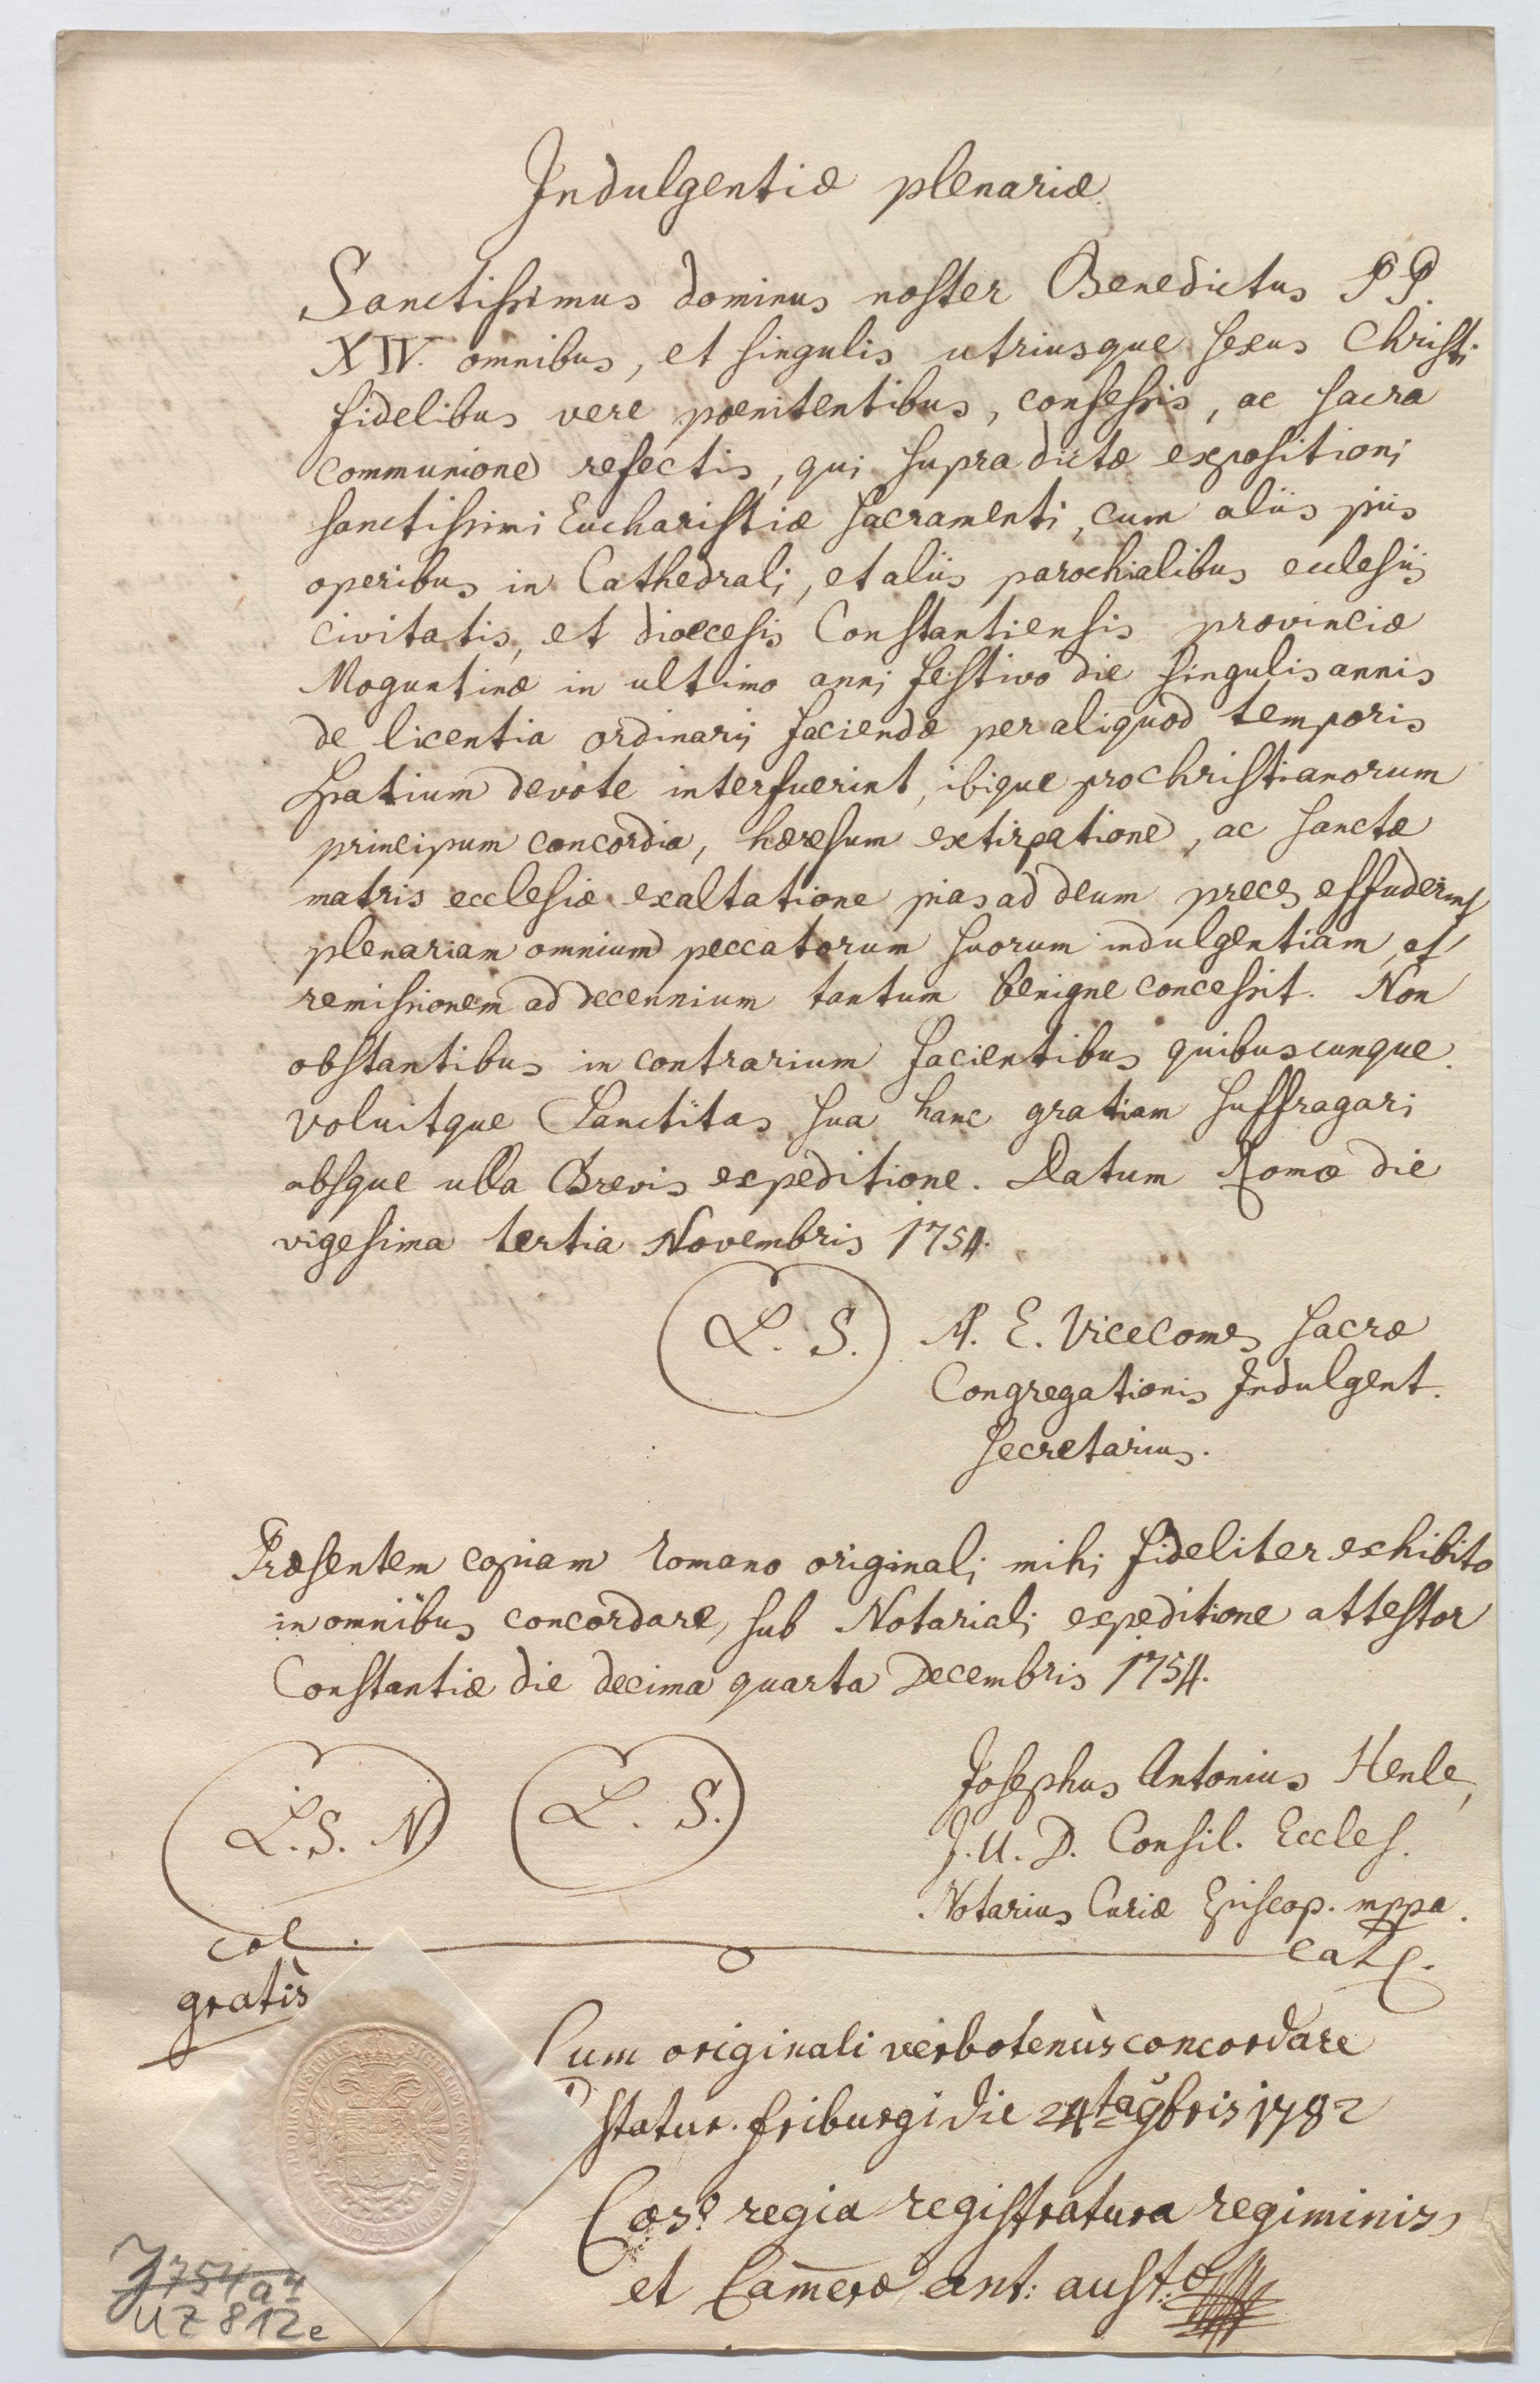 Indulgentiæ plenariæ.
Sanctissimus dominus noster Benedictus PP.
XIV. omnibus, et singulis utriusque sexus Christi
fidelibus vere pœnitentibus, confessis, ac sacra
communione refectis, qui supradictæ expositioni
sanctissimi Eucharistiæ sacramenti, cum aliis piis
operibus in Cathedrali, et aliis parochialibus ecclesiis
civitatis, et diœcesis Constantiensis provinciæ
Moguntinæ in ultimo anni festivo die singulis annis
de licentia ordinarii faciendæ per aliquod temporis
spatium devote interfuerint, ibique pro christianorum
principum concordia, hæresum extirpatione, ac sanctæ
matris ecclesiæ exaltatione pias ad deum preces effuderint
plenariam omnium peccatorum suorum indulgentiam, et
remissionem ad decennium tantum benigne concessit. Non
obstantibus in contrarium facientibus quibuscunque.
voluitque Sanctitas sua hanc gratiam suffragari
absque ulla Brevis expeditione. Datum Romæ die
vigesima tertia Novembris 1754.
L. S. A. E. Vicecomes sacræ
Congregationis Indulgent.
secretarius.
Præsentem copiam romano originali mihi fideliter exhibito
in omnibus concordare, sub Notariali expeditione attestor
Constantiæ die decima quarta Decembris 1754.
L. S. N L. S. Josephus Antonius Henle,
J. U. D. Consil. Eccles.
Notarius Curiæ Episcop. mppa.
col.
gratis
Cum originali verbotenùs concordare
statur. friburgi die 24ta 9bris 1782
Cæs: regia registratura regiminis
et Cameræ ant: aust:æ
J 754 a 4
UZ 812e